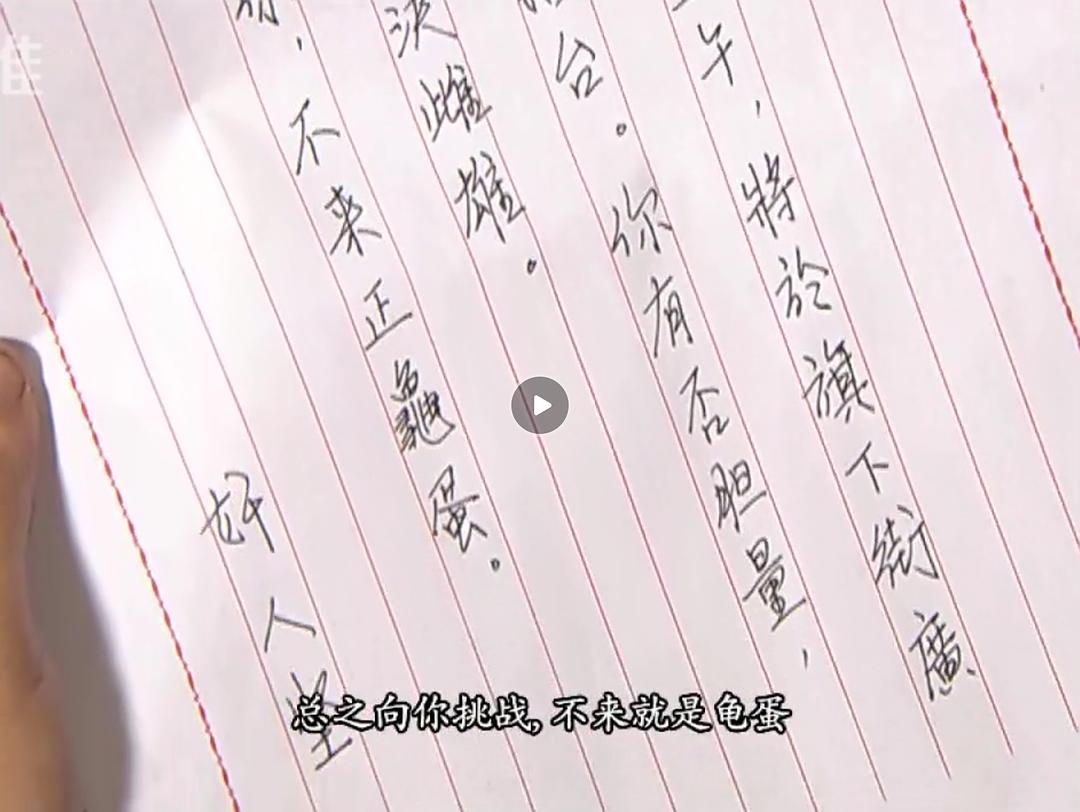 午，將於旗下街廣
台。你有否胆量，
決雌雄。
，不来正龜蛋。
奸人堅
总之向你挑战，不来就是龟蛋